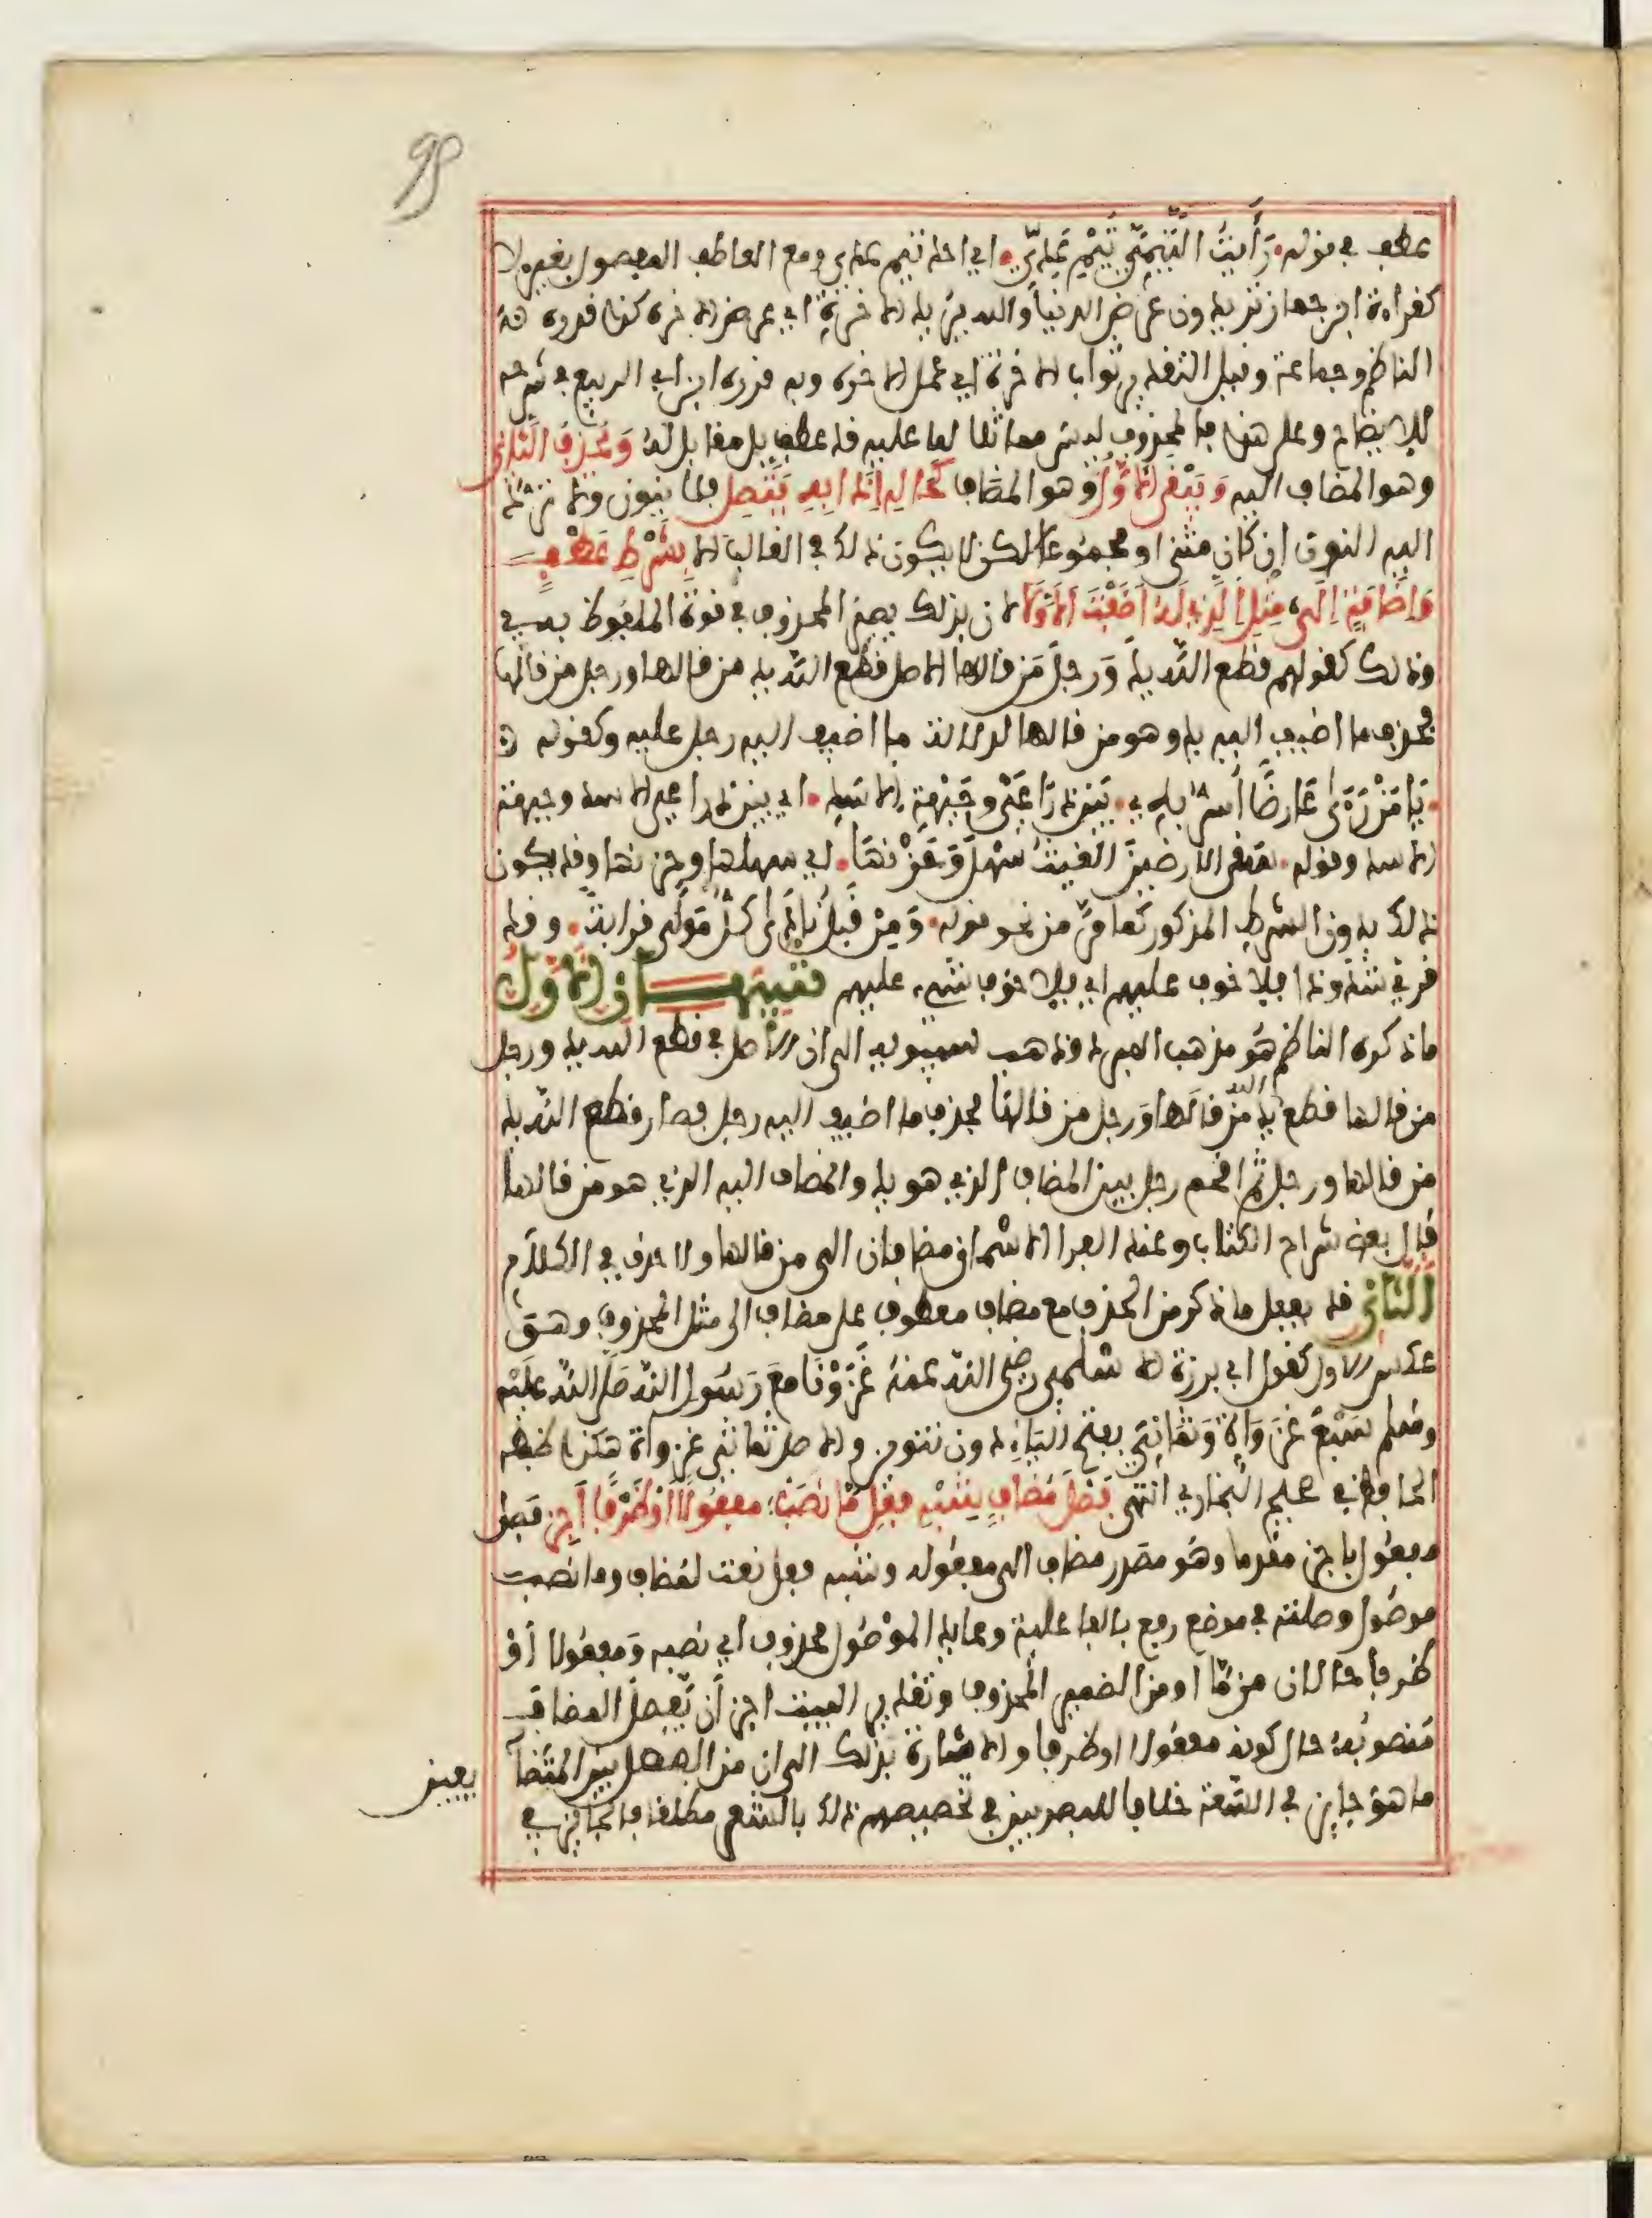 عطف في قوله رَأَيْتُ التَّيْمِيَّ تَيْمَ عَدِيِّ اي احد تيم عدي ومع العاطف المفصول بغير لا
كقراءة ابن جماز تريدون عرض الدنيا والله يريد الاخرةِ اي عرض الاخره كذا قدره
الناظم وجماعة وقيل التقدير ثواب الاخرة اي عمل الاخره وبه قدره ابن ابي الربيع في شرحه
للايضاح وعلى هذا فالمحذوف ليس مماثلا لما عليه قد عطف بل مقابل له وَيُحْذَفُ الثَّانِي
وهو المضاف اليه وَيَبْقَى الاَوَّلُ وهو المضاف كَحَالِهِ اِذَا بِهِ يَتَّصِلُ فلا ينون ولا ترد
اليه النون ان كان مثنى او مجموعا لكن لا يكون ذلك في الغالب الا بِشَرْطِ عَطْفٍ
وَاِضَافَةٍ اِلَى مِثْلِ الَّذِي لَهُ اَضَفْتَ الاَوَّلَا لان بذلك يصير المحذوف في قوة الملفوظ به
وذلك كقولهم قطع اللّه يدَ وَرجلَ مَن قالها الاصل قطع اللّه يد من قالها ورجل من قالها
فحذف ما اضيف اليه يد وهو من قالها لدلالة ما اضيف اليه رجل عليه وكقوله
يَا مَنْ رَأَى عَارِضًا أُسَرُّ بِهِ بَيْنَ ذِرَاعَيْ وَجَبْهَةِ الاَسَدِ اي بين ذراعي الاسد وجبهة
الاسد وقوله سقى الارضين الغيث سَهْلَ وَحَزْنَهَا اي سهلها وحزنها وقد يكون
ذلك بدون الشرط المذكور كما مرّ من نحو قوله وَمِنْ قَبْلِ نَادَى كُلُّ مَوْلَى قرابة وقد
قرئ شذوذا فلا خوف عليهم اي فلا خوف شيء عليهم تنبيهــان الاَوّل
ما ذكره الناظم هو مذهب المبرد وذهب سيبويه الى ان الاصل في قطع الله يد ورجل
من قالها قطع الله يد من قالها ورجل من قالها فحذف ما اضيف اليه رجل فصار قطع اللّه يد
من قالها ورجل ثم اقحم رجل بين المضاف الذي هو يد والمضاف اليه الذي هو من قالها
قال بعض شراح الكتاب وعند الفرا الاسمان مضافان الى من قالها ولا حذف في الكلام
الثَّانِي قد يفعل ما ذكر من الحذف مع مضاف معطوف على مضاف الى مثل المحذوف وهو
عكس الاول كقول ابي برزة الاسلمي رضي الله عنه غَزَوْنَا مَعَ رَسُولِ اللّهِ صَلَّى اللّهُ عَلَيْهِ
وسلم سَبْعَ غَزَوَاتٍ وَثَمَانِيَ بفتح الياء دون تنوين والاصل ثماني غزوات هكذا ضبطه
الحافظ في صحيح البخاري انتهى فَصْلَ مُضَافٍ شِبْهِ فِعْلٍ مَا نَصَبْ مَفْعُولًا اَوْ ظَرْفًا اَجِزْ فصل
مفعول باجز مقدما وهو مصدر مضاف الى مفعوله وشبه فعل نعت لمضاف وما نصب
موصول وصلته في موضع رفع بالفاعلية وعايد الموصول محذوف اي نصبه وَمفعولا أو
ظرفا حالان من مَا او من الضمير المحذوف وتقدير البيت اجز أن يَفصل المضاف
منصوبُه حال كونه مفعولا او ظرفا والاشارة بذلك الى ان من الفصل بين المتضا
ما هو جايز في السّعة خلافا للبصريين في تخصيصهم ذلك بالشعر مطلقا فالجايز في
يفين